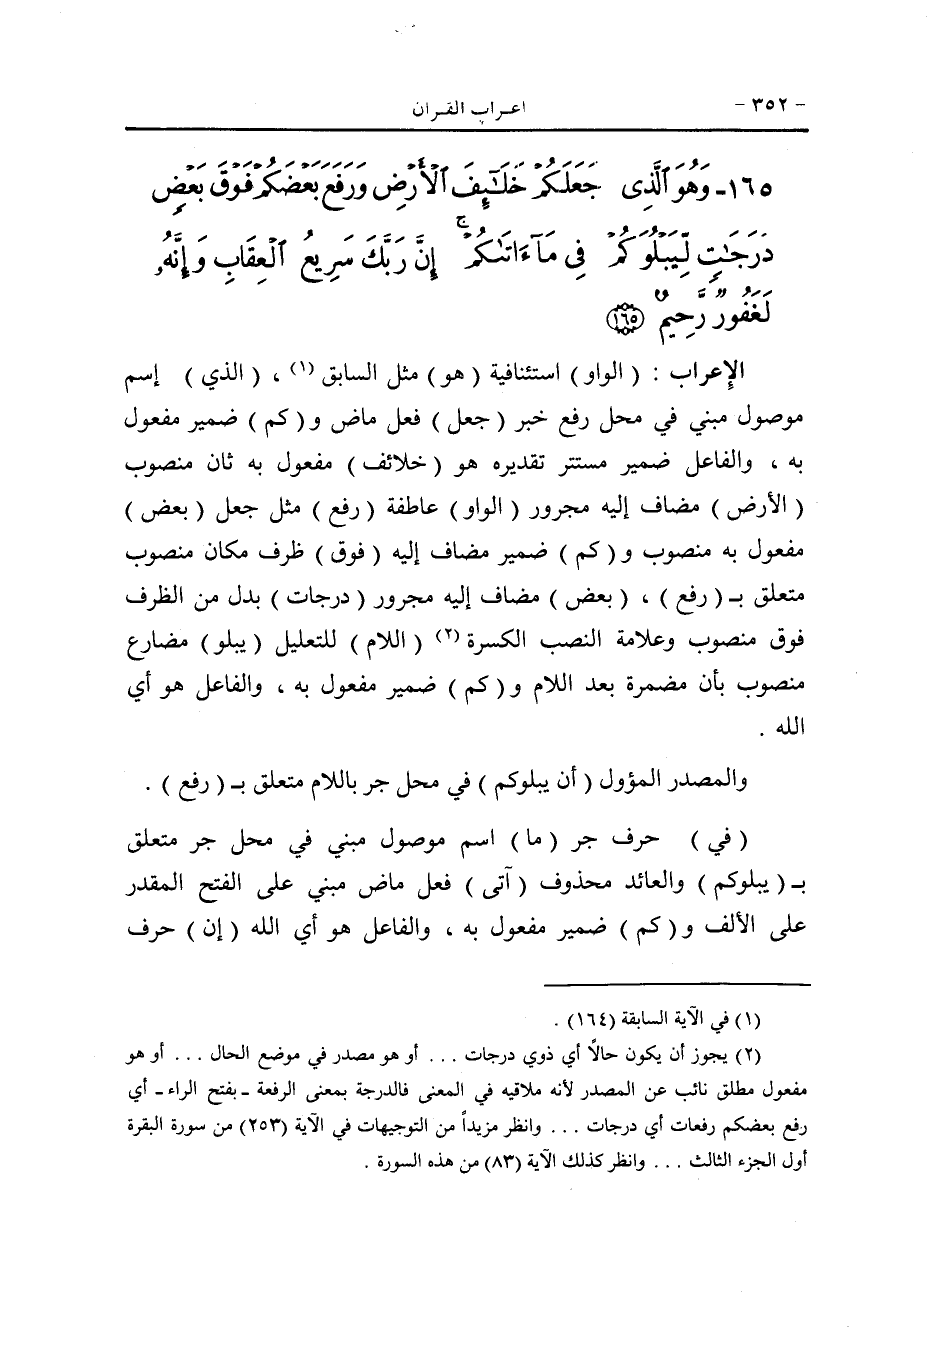 - ٣٥٢ -
اعراب القران
١٦٥- وَهُوَ ٱلَّذِى جَعَلَكُمْ خَلَـٰٓئِفَ ٱلْأَرْضِ وَرَفَعَ بَعْضَكُمْ فَوْقَ بَعْضٍ
دَرَجَـٰتٍ لِّيَبْلُوَكُمْ فِى مَآ ءَاتَىٰكُمْ ۗ إِنَّ رَبَّكَ سَرِيعُ ٱلْعِقَابِ وَإِنَّهُۥ
لَغَفُورٌ رَّحِيمٌۢ ١٦٥
الإعراب : ( الواو ) استئنافية ( هو ) مثل السابق (١) ، ( الذي ) إسم
موصول مبني في محل رفع خبر ( جعل ) فعل ماض و( كم ) ضمير مفعول
به ، والفاعل ضمير مستتر تقديره هو ( خلائف ) مفعول به ثان منصوب
( الأرض ) مضاف إليه مجرور ( الواو ) عاطفة ( رفع ) مثل جعل ( بعض )
مفعول به منصوب و( كم ) ضمير مضاف إليه ( فوق ) ظرف مكان منصوب
متعلق بـ ( رفع ) ، ( بعض ) مضاف إليه مجرور ( درجات ) بدل من الظرف
فوق منصوب وعلامة النصب الكسرة (٢) ( اللام ) للتعليل ( يبلو ) مضارع
منصوب بأن مضمرة بعد اللام و( كم ) ضمير مفعول به ، والفاعل هو أي
الله .
والمصدر المؤول ( أن يبلوكم ) في محل جر باللام متعلق بـ ( رفع ) .
( في ) حرف جر ( ما ) اسم موصول مبني في محل جر متعلق
بـ ( يبلوكم ) والعائد محذوف ( آتى ) فعل ماض مبني على الفتح المقدر
على الألف و( كم ) ضمير مفعول به ، والفاعل هو أي الله ( إن ) حرف
(١) في الآية السابقة (١٦٤) .
(٢) يجوز أن يكون حالًا أي ذوي درجات . . . أو هو مصدر في موضع الحال . . . أو هو
مفعول مطلق نائب عن المصدر لأنه ملاقيه في المعنى فالدرجة بمعنى الرفعة ـ بفتح الراء ـ أي
رفع بعضكم رفعات أي درجات . . . وانظر مزيداً من التوجيهات في الآية (٢٥٣) من سورة البقرة
أول الجزء الثالث . . . وانظر كذلك الآية (٨٣) من هذه السورة .